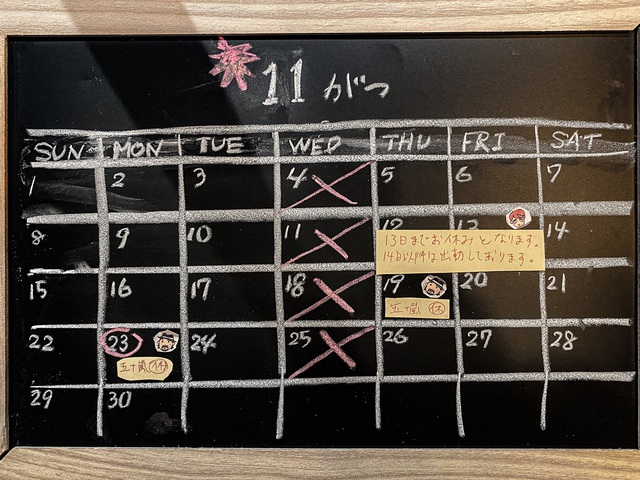 11 がつ
SUN MON TUE WED THU FRI SAT
1 2 3 4 5 6 7
8 9 10 11 12 13 14
13日までお休みとなります。
14日以降は出勤しております。
15 16 17 18 19 20 21
五十嵐 休
22 23 24 25 26 27 28
五十嵐 休
29 30